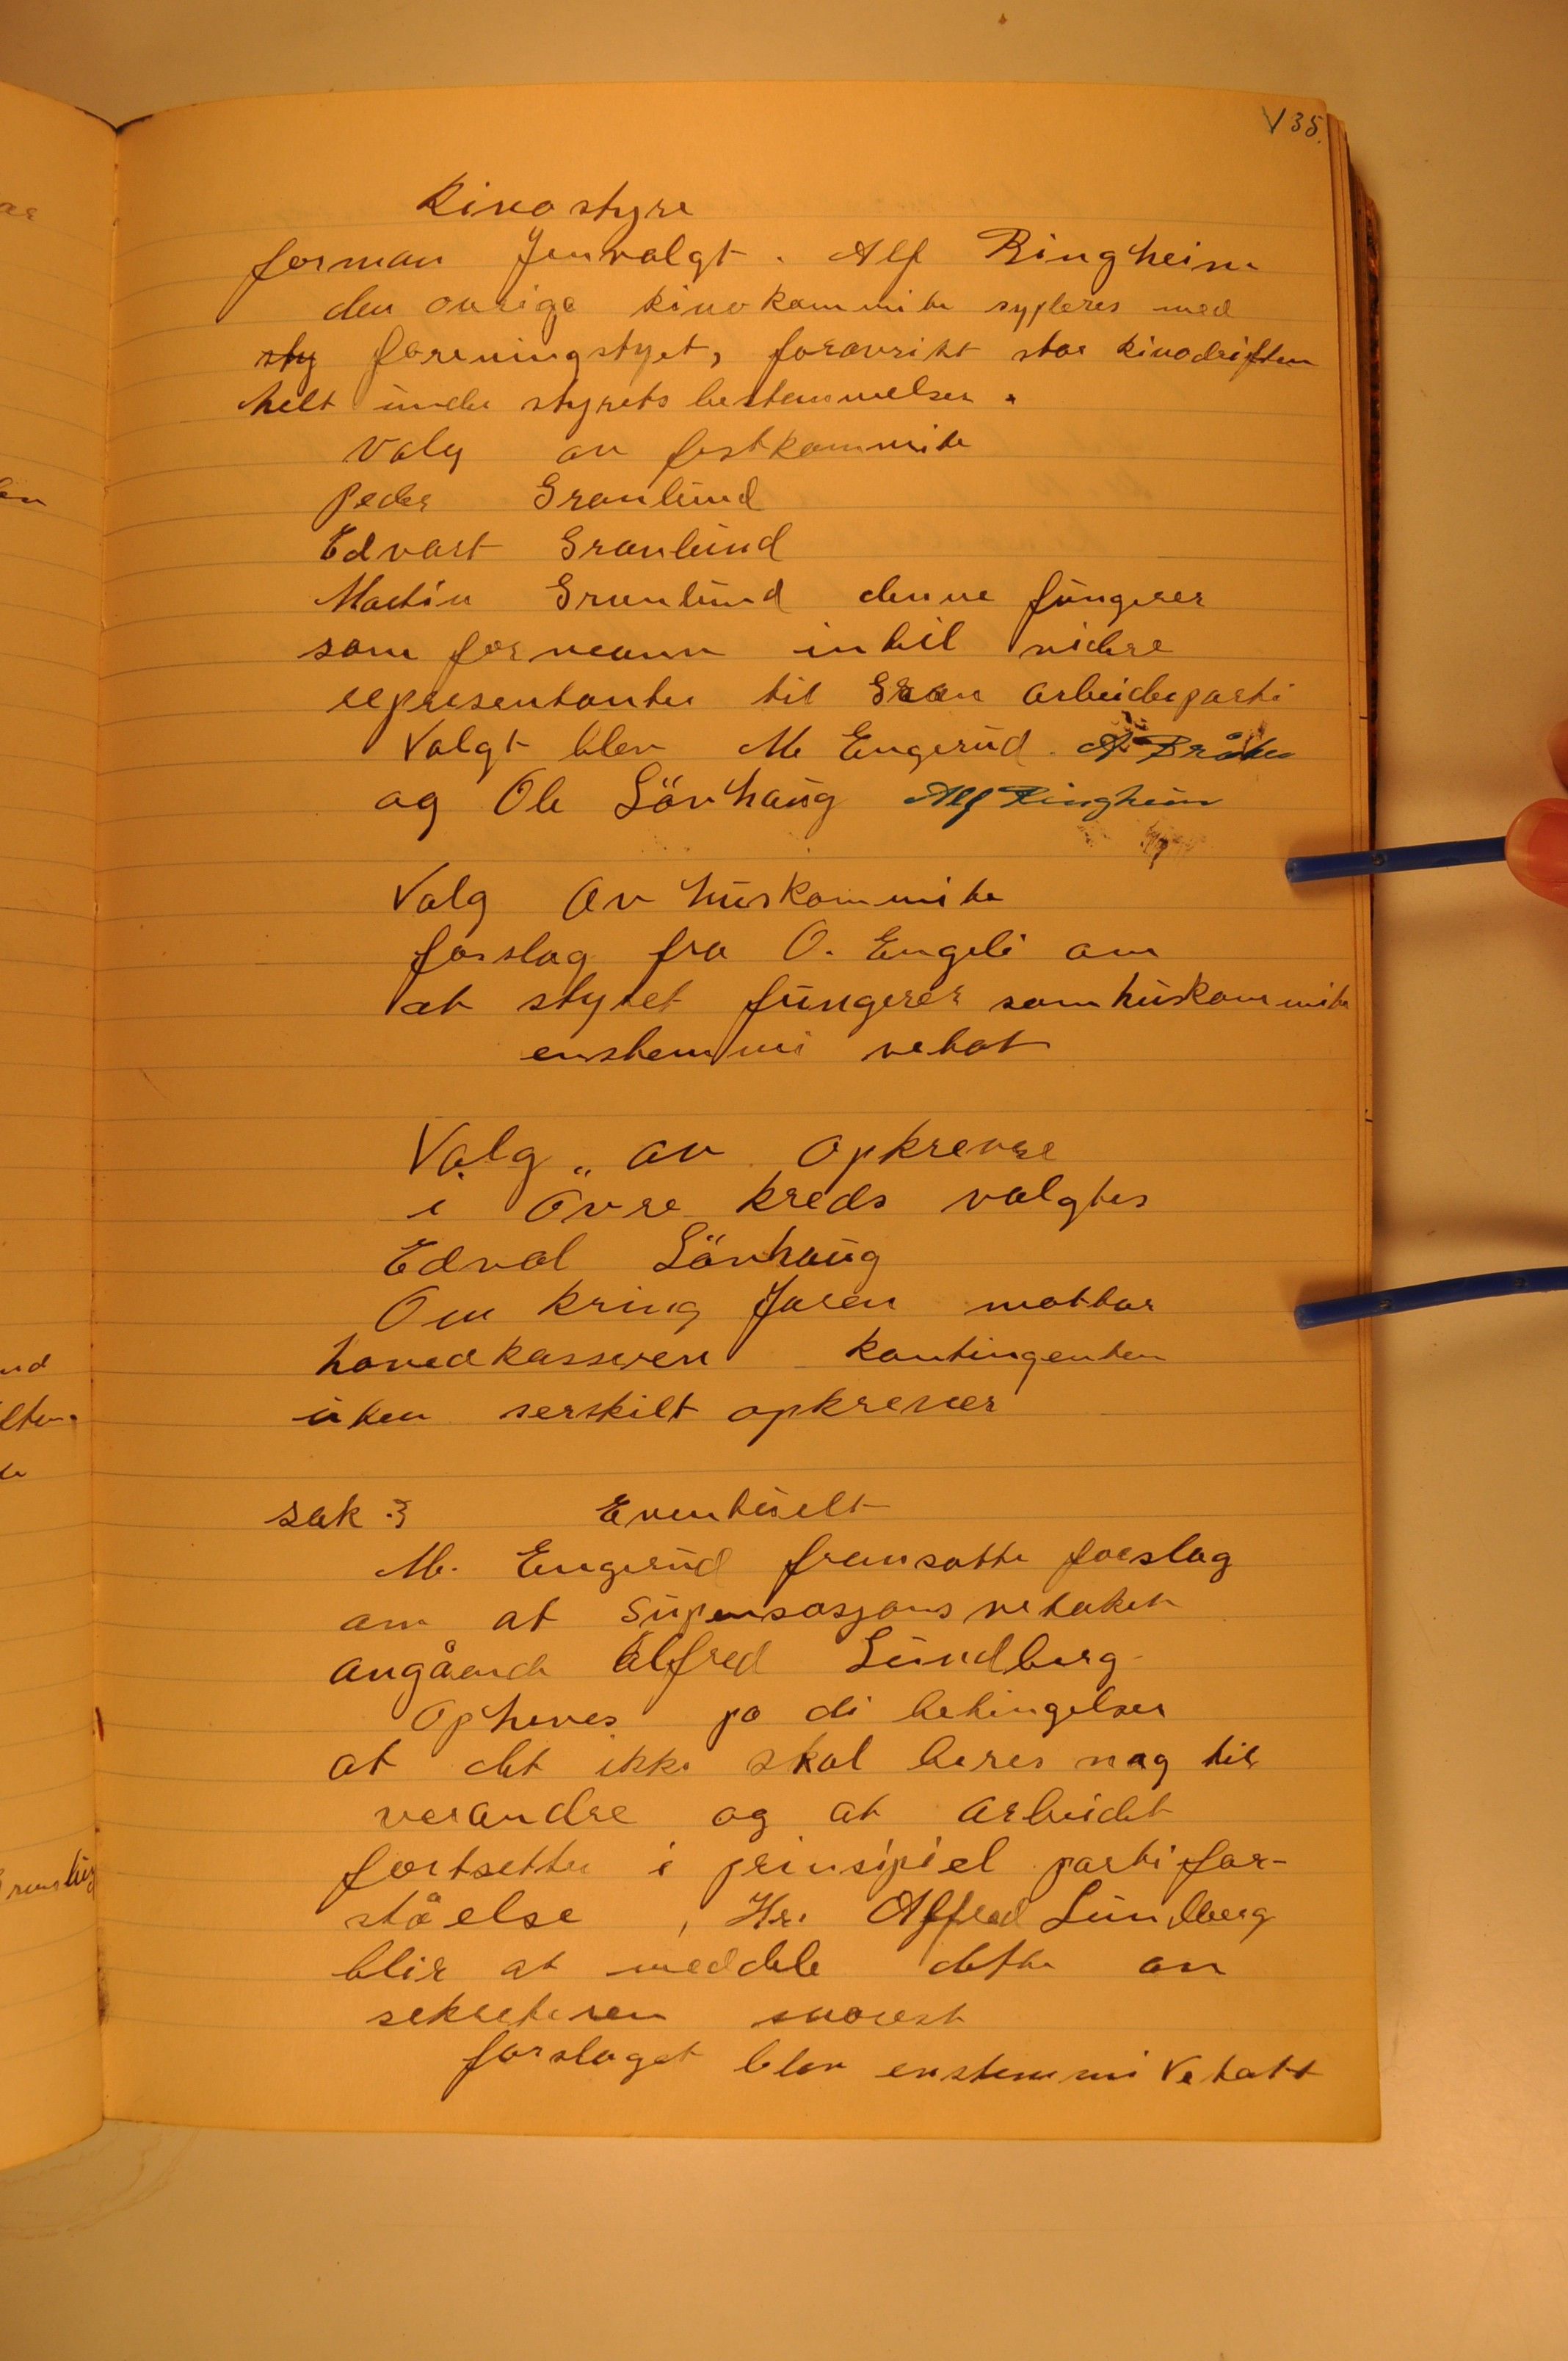 V 35.
Kinostyre
forman Jenvalgt. Alf Ringheim
den ovrige kinokommite sypleres med
sty foreningstyet, foravrikt stor kinodriften
helt under styrets bestemmelser.
Valg av festkommite
Peder Granlund
Edvart Granlund
Martin Granlund denne fungerer
som formann intil videre
representanter til Gran arbeiderparti
Valgt blev M Engerud. A Bråten
og Ole Lövhaug Alf Ringheim
Valg av huskommite
forslag fra O. Engeli om
at styret fungerer som huskommite
enstemmi vetat
Valg av opkrever
i Övre kreds valgtes
Edval Lövhaug
Om kring Jaren mottar
hovedkasseren kontingenten
uten serskilt opkrever
sak 3 Eventuelt
M. Engerud fremsatte forslag
om at supensasjons vetaket
angående Alfred Lundberg
Opheves po di betingelser
at det ikke skal beres nag til
verandre og at arbeidet
fortsetter i prinsipiel partifor-
ståelse, Hr. Alfred Lundberg
blir at meddele dette av
sekreteren snarest
forslaget blev enstemmi Vetatt